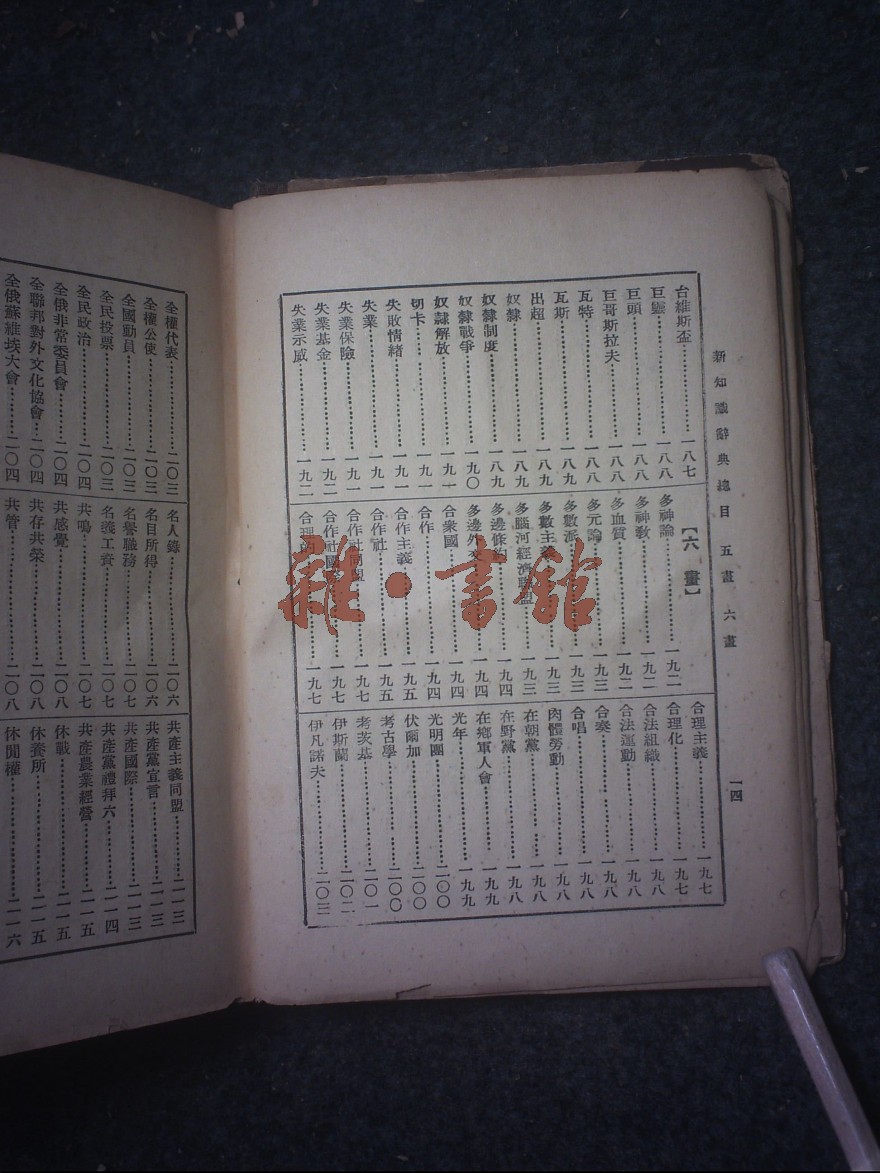 新知識辭典總目 五畫 六畫
一四
台維斯盃…………一八七
巨靈…………一八八
巨頭…………一八八
巨哥斯拉夫…………一八八
瓦特…………一八八
瓦斯…………一八九
出超…………一八九
奴隸…………一八九
奴隸制度…………一八九
奴隸戰爭…………一九〇
奴隸解放…………一九一
切卡…………一九一
失敗情緒…………一九一
失業…………一九一
失業保險…………一九一
失業基金…………一九二
失業示威…………一九二
【六畫】
多神論…………一九二
多神教…………一九二
多血質…………一九二
多元論…………一九三
多數派…………一九三
多數主義…………一九三
多腦河經濟聯盟…………一九三
多邊條約…………一九四
多邊外交…………一九四
合衆國…………一九四
合作…………一九四
合作主義…………一九五
合作社…………一九五
合作社同盟…………一九七
合作社國…………一九七
合理的…………一九七
合理主義…………一九七
合理化…………一九七
合法組織…………一九八
合法運動…………一九八
合奏…………一九八
合唱…………一九八
肉體勞動…………一九八
在朝黨…………一九八
在野黨…………一九八
在鄉軍人會…………一九九
光年…………一九九
光明團…………二〇〇
伏爾加…………二〇〇
考古學…………二〇〇
考茨基…………二〇一
伊斯蘭…………二〇二
伊凡諾夫…………二〇三
全權代表…………二〇三
全權公使…………二〇三
全國動員…………二〇三
全民投票…………二〇三
全民政治…………二〇四
全俄非常委員會…………二〇四
全聯邦對外文化協會…………二〇四
全俄蘇維埃大會…………二〇四
名人錄…………二〇六
名目所得…………二〇六
名譽職務…………二〇七
名義工資…………二〇七
共鳴…………二〇七
共感覺…………二〇八
共存共榮…………二〇八
共管…………二〇八
共產主義同盟…………二一三
共產黨宣言…………二一三
共產國際…………二一三
共產黨禮拜六…………二一四
共產農業經營…………二一五
休戰…………二一五
休養所…………二一五
休閒權…………二一六
雜·書館